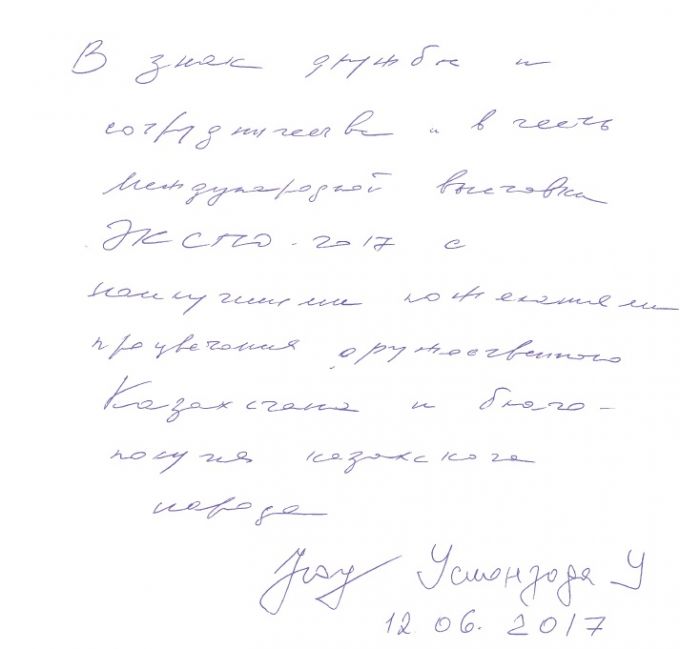 В знак дружбы и
сотрудничества и в честь
международной выставки
ЭКСПО-2017 с
наилучшими пожеланиями
процветания дружественного
Казахстана и благо-
получия казахского
народа
Усмонзода У
12.06.2017